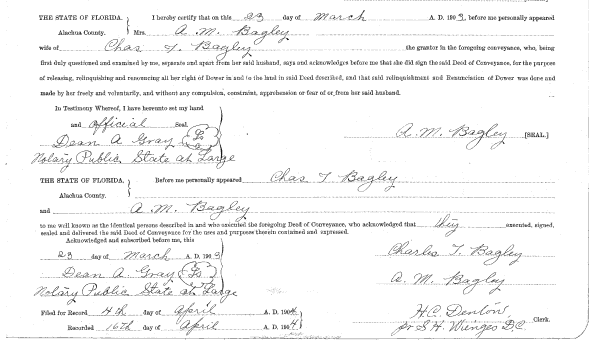 THE STATE OF FLORIDA. I hereby certify that on this 23 day of March A. D. 1903, before me personally appeared
Alachua County. Mrs. A. M. Bagley
wife of Chas T. Bagley the grantor in the foregoing conveyance, who, being
first duly questioned and examined by me, separate and apart from her said husband, says and acknowledges before me that she did sign the said Deed of Conveyance, for the purpose
of releasing, relinquishing and renouncing all her right of Dower in and to the land in said Deed described, and that said relinquishment and Renunciation of Dower was done and
made by her freely and voluntarily, and without any compulsion, constraint, apprehension or fear of or from her said husband.
In Testimony Whereof, I have hereunto set my hand
and official Seal
Dean A Gray LS
A. M. Bagley [SEAL.]
Notary Public State at Large
THE STATE OF FLORIDA. Before me personally appeared Chas T Bagley
Alachua County.
and A. M. Bagley
to me well known as the identical persons described in and who executed the foregoing Deed of Conveyance, who acknowledged that they executed, signed,
sealed and delivered the said Deed of Conveyance for the uses and purposes therein contained and expressed.
Acknowledged and subscribed before me, this
23 day of March A. D. 1903
Charles T. Bagley
Dean A. Gray LS
A. M. Bagley
Notary Public State at Large
Filed for Record 4th day of April A. D. 1904
H. C. Denton, Clerk.
Recorded 16th day of April A. D. 1904
pr S. H. Wienges D.C.